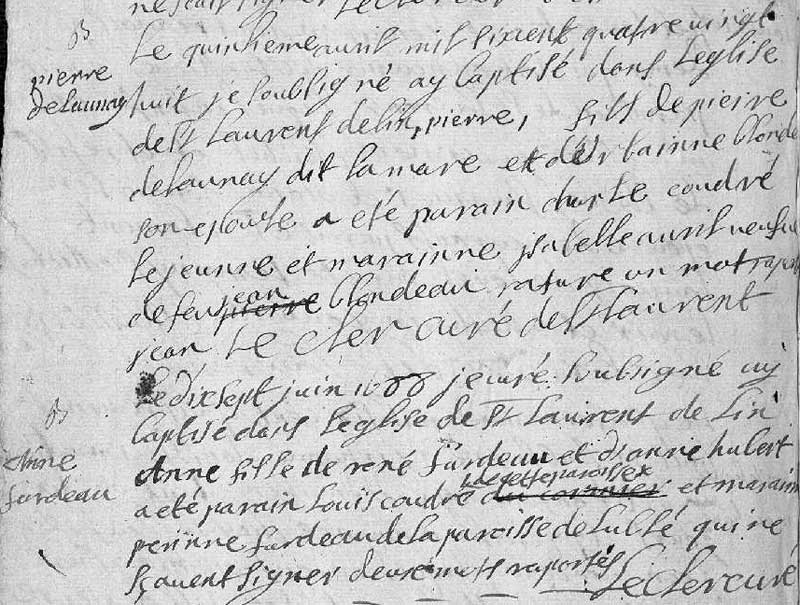 B
pierre
delaunay
Le quinsieme avril mil sixcent quatre vingt
huit je soubsigné ay baptisé dans Leglise
de St Laurent de lin, pierre, fils de pierre
delaunay dit la mare et d'urbainne blonde
son epouse a eté parain charle coudré
Le jeunne et marainne jsabelle avril veufve
de feu jean pierre blondeau rature un mot raporté
jean Le Cler curé de St Laurent
B
Anne
furdeau
Le dix sept juin 1688 je curé soubsigné ay
baptisé dans Leglise de St Laurent de Lin
Anne fille de rené furdeau et d'anne hubert
a eté parain Louis coudré de cette paroisse et marainne
perinne furdeau de la paroisse de lublé qui ne
sçavent signer deux mots raportés Le Cler curé